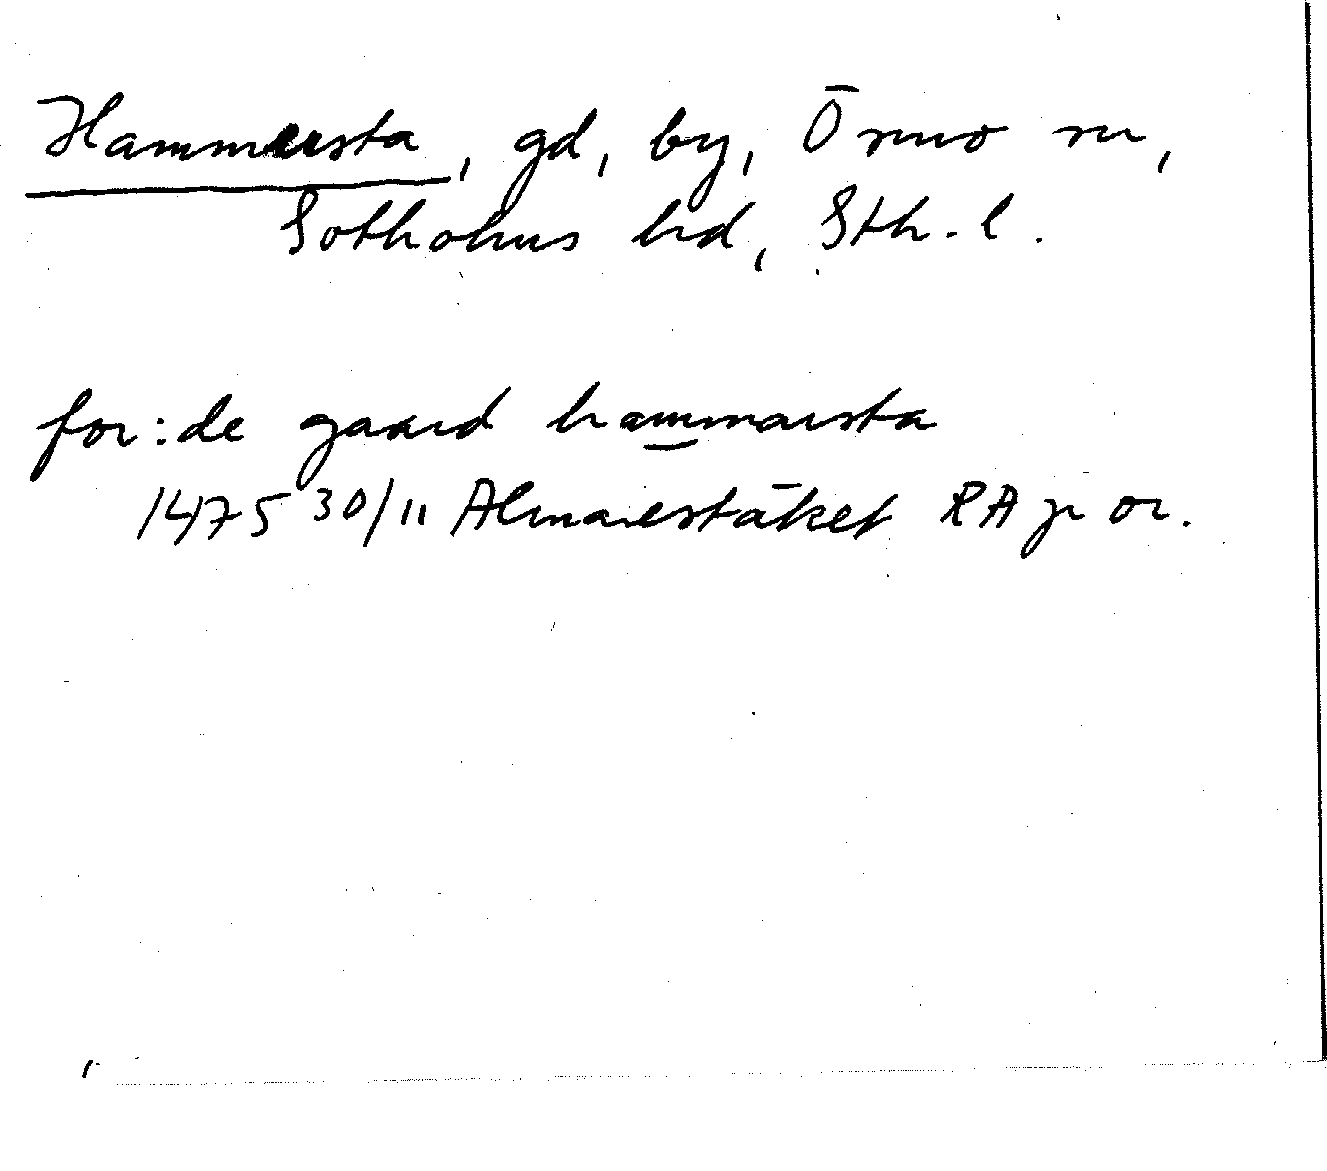 Hammersta, gd, by, Ösmo sn,
Sotholms hd, Sth. l.
for:de gaard hammarsta
1475 30/11 Almarestäket RA p or.